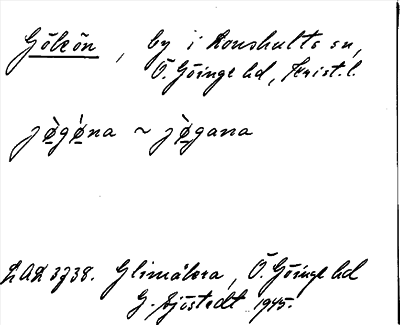 Gökön, by i Loushults sn,
Ö. Göinge hd, Krist. l.
jø̀gø̀na ~ jø̀gana
LAL 3738. Glimåkra, Ö. Göinge hd
G. Sjöstedt 1945.